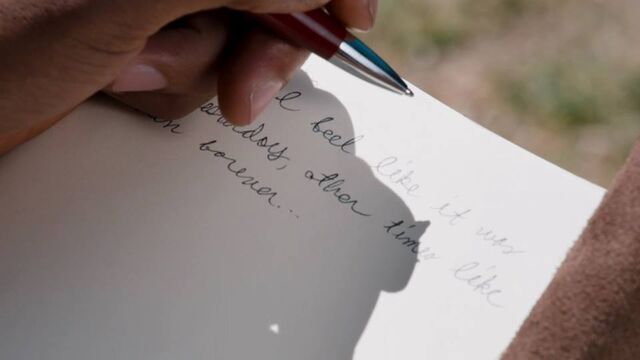 I feel like it was
terday, other times like
en forever...